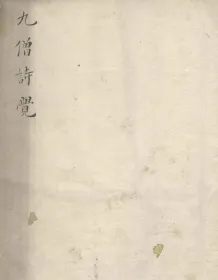 九僧詩覺